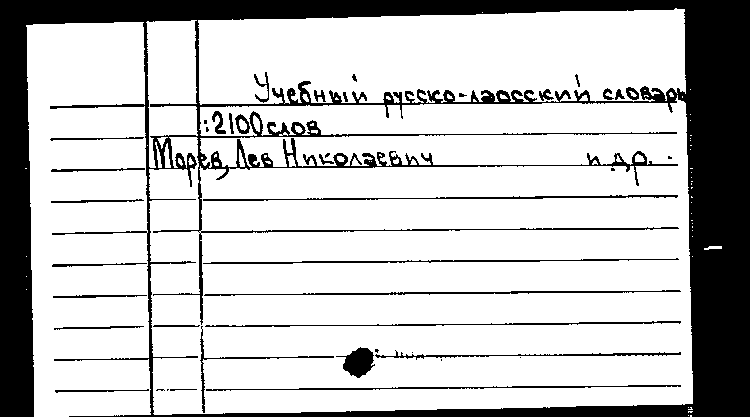 Учебный русско-лаосский словарь
:2100 слов
Морев, Лев Николаевич и др.